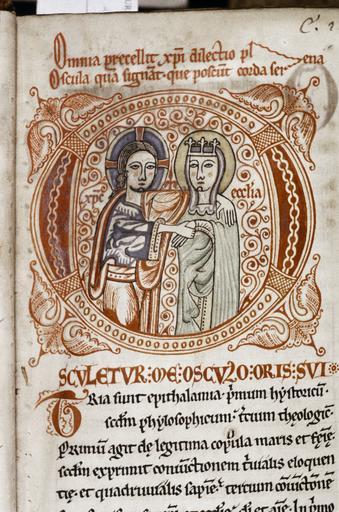 C. 2
Omnia precellit xp̄i dilectio pl ena
Oscula quā signāt· que poscūt corda ser
xp̄c
eccl̄ia
SCVLETVR : ME : OSCVLO : ORIS : SVI :
TRia sunt epithalamia· p̄mum hystoricū·
sc̄dm phylosophicum· t̄cium theologic̄·
Primū agit de legitima copula maris et fēıē·
sc̄dm exprimit coniūctionem t̄uialis eloquen
tię· et quadruuialis sapiē· tercium coniūctōnē